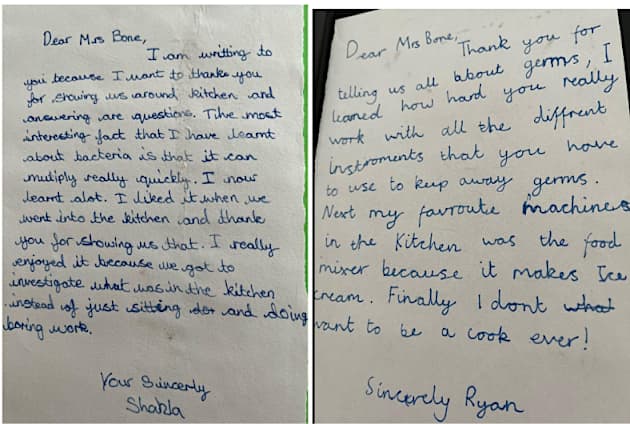 Dear Mrs Bone,
I am writting to
you because I want to thanks you
for showing us around kitchen and
answering are questions. The most
interesting fact that I have learnt
about bacteria is that it can
mutiply really quickly. I now
learnt alot. I liked it when we
went into the kitchen and thank
you for showing us that. I really
enjoyed it because we got to
investigate what was in the kitchen
instead of just sitting and doing
boring work.
Your Sincerly
Shakla
Dear Mrs Bone, Thank you for
telling us all about germs, I
learned how hard you really
work with all the diffrent
instroments that you have
to use to keep away germs.
Next my favroute machines
in the Kitchen was the food
mixer because it makes Ice
cream. Finally I dont what
want to be a cook ever!
Sincerely Ryan